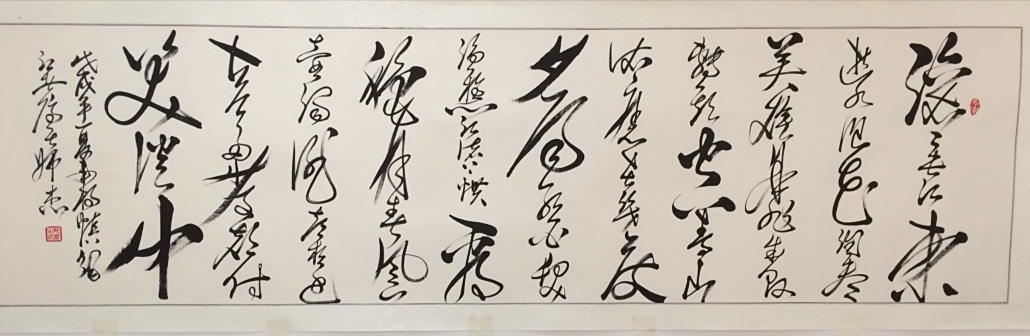 滚滚长江东
逝水浪花淘尽
英雄是非成败
转头空青山
依旧在几度
夕阳红白发
渔樵江渚上惯看
秋月春风一
壶浊酒喜相逢
古今多少事都付
笑谈中
戊戌年夏书杨慎词